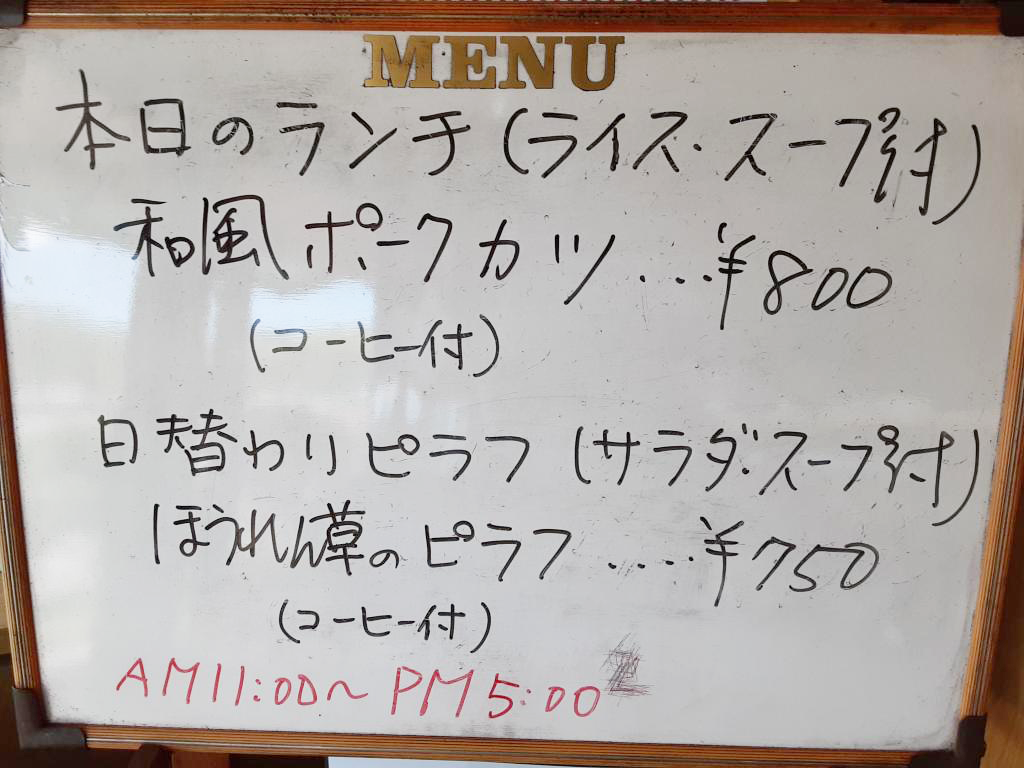 MENU
本日のランチ(ライス・スープ付)
和風ポークカツ‥‥¥800
(コーヒー付)
日替わりピラフ(サラダ・スープ付)
ほうれん草のピラフ‥‥‥¥750
(コーヒー付)
AM11:00~PM5:00